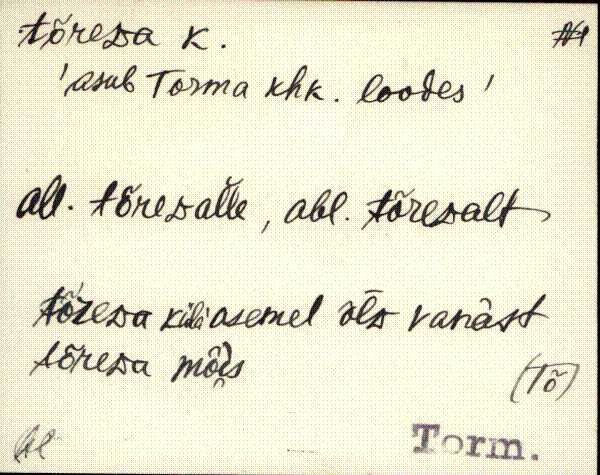 tõreᴅa k.
'asub Torma khk. loodes'
all. tõreᴅalle, abl. tõreᴅalt
tõreᴅa küla asemel õlᴅ vanast
tõreᴅa mõis
(Tõ)
Torm.